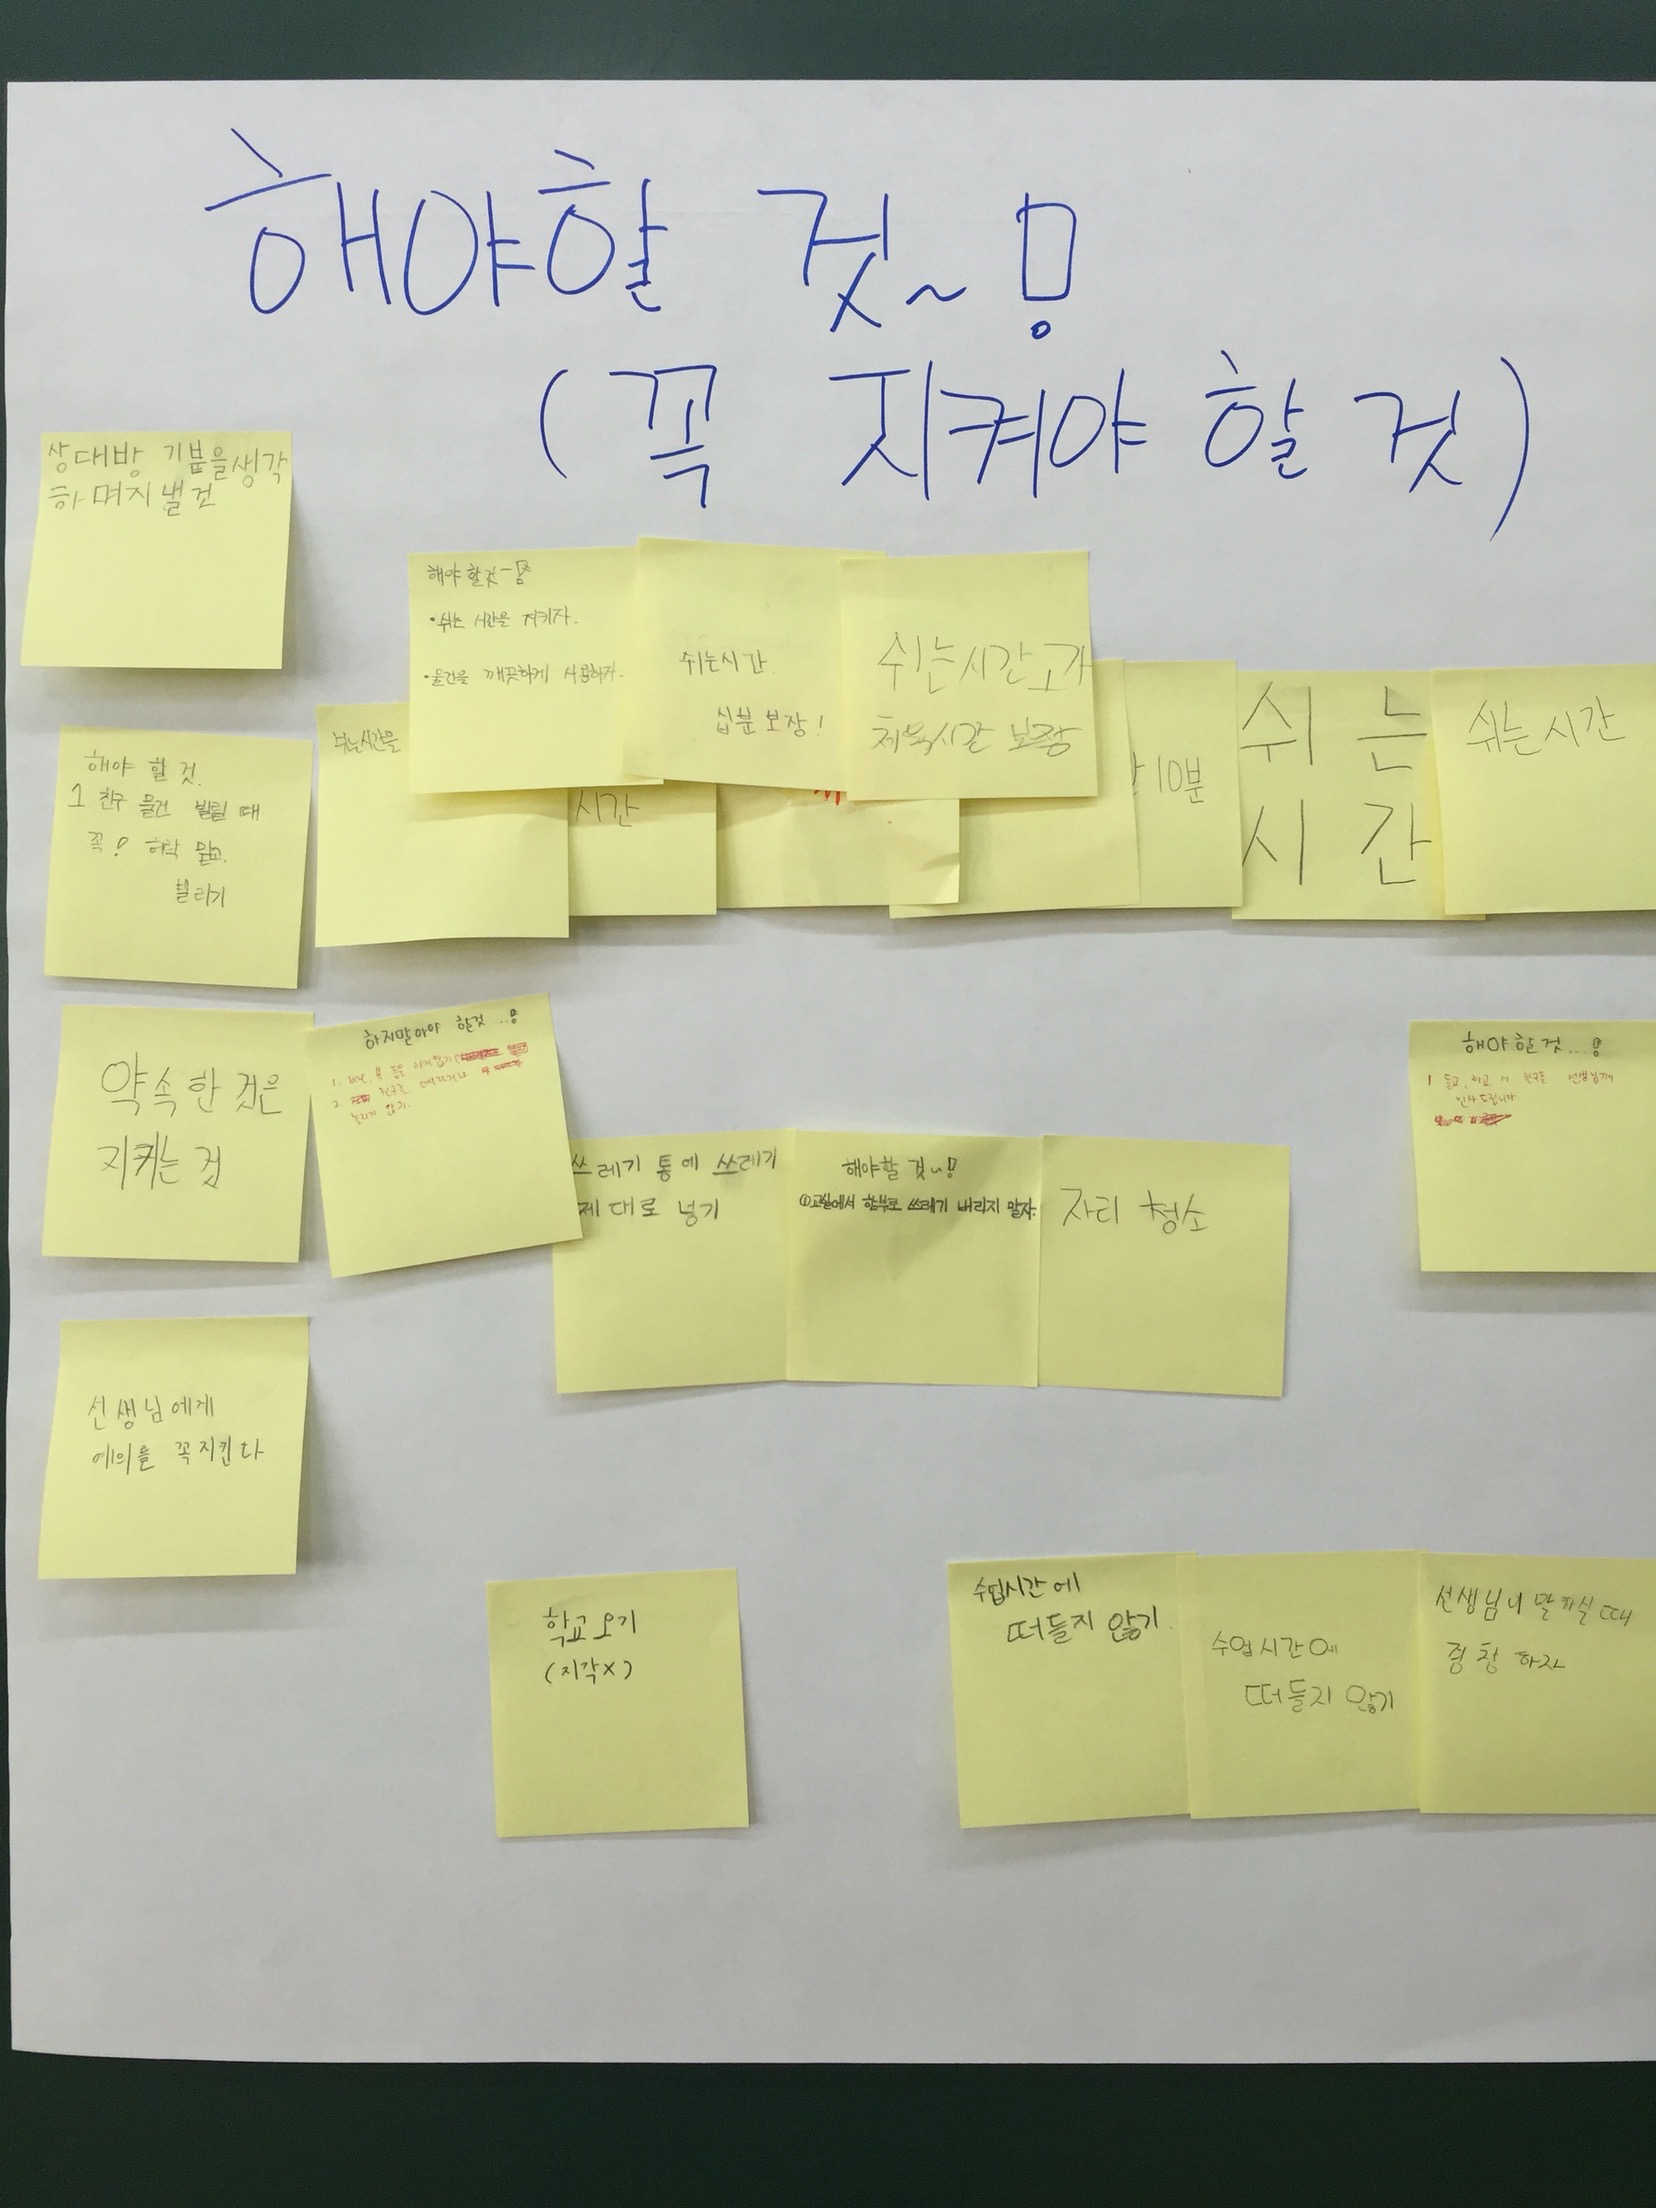 해야할 것~!
(꼭 지켜야 할 것)
상대방 기분을생각
하며지낼것
해야 할것-!
•쉬는 시간을 지키자.
•물건을 깨끗하게 사용하자.
쉬는시간
십분 보장!
쉬는시간고가
체육시간 보장
쉬는시간을
시간
10분
쉬는
시간
쉬는시간
해야 할 것.
1 친구 물건 빌릴 때
꼭! 허락 맡고
빌리기
약속한 것은
지키는 것
하지말아야 할것...!
1.
2. 친구를 때리거나
놀리지 않기.
쓰레기 통에 쓰레기
제대로 넣기
해야할 것~!
①교실에서 함부로 쓰레기 버리지 말자.
자리 청소
해야할것...!
1 등교, 하교 시 친구들 선생님께
인사드립니다
선생님에게
예의를 꼭지킨다
학교오기
(지각X)
수업시간에
떠들지 않기.
수업시간에
떠들지 않기
선생님이 말하실 때
경청 하자